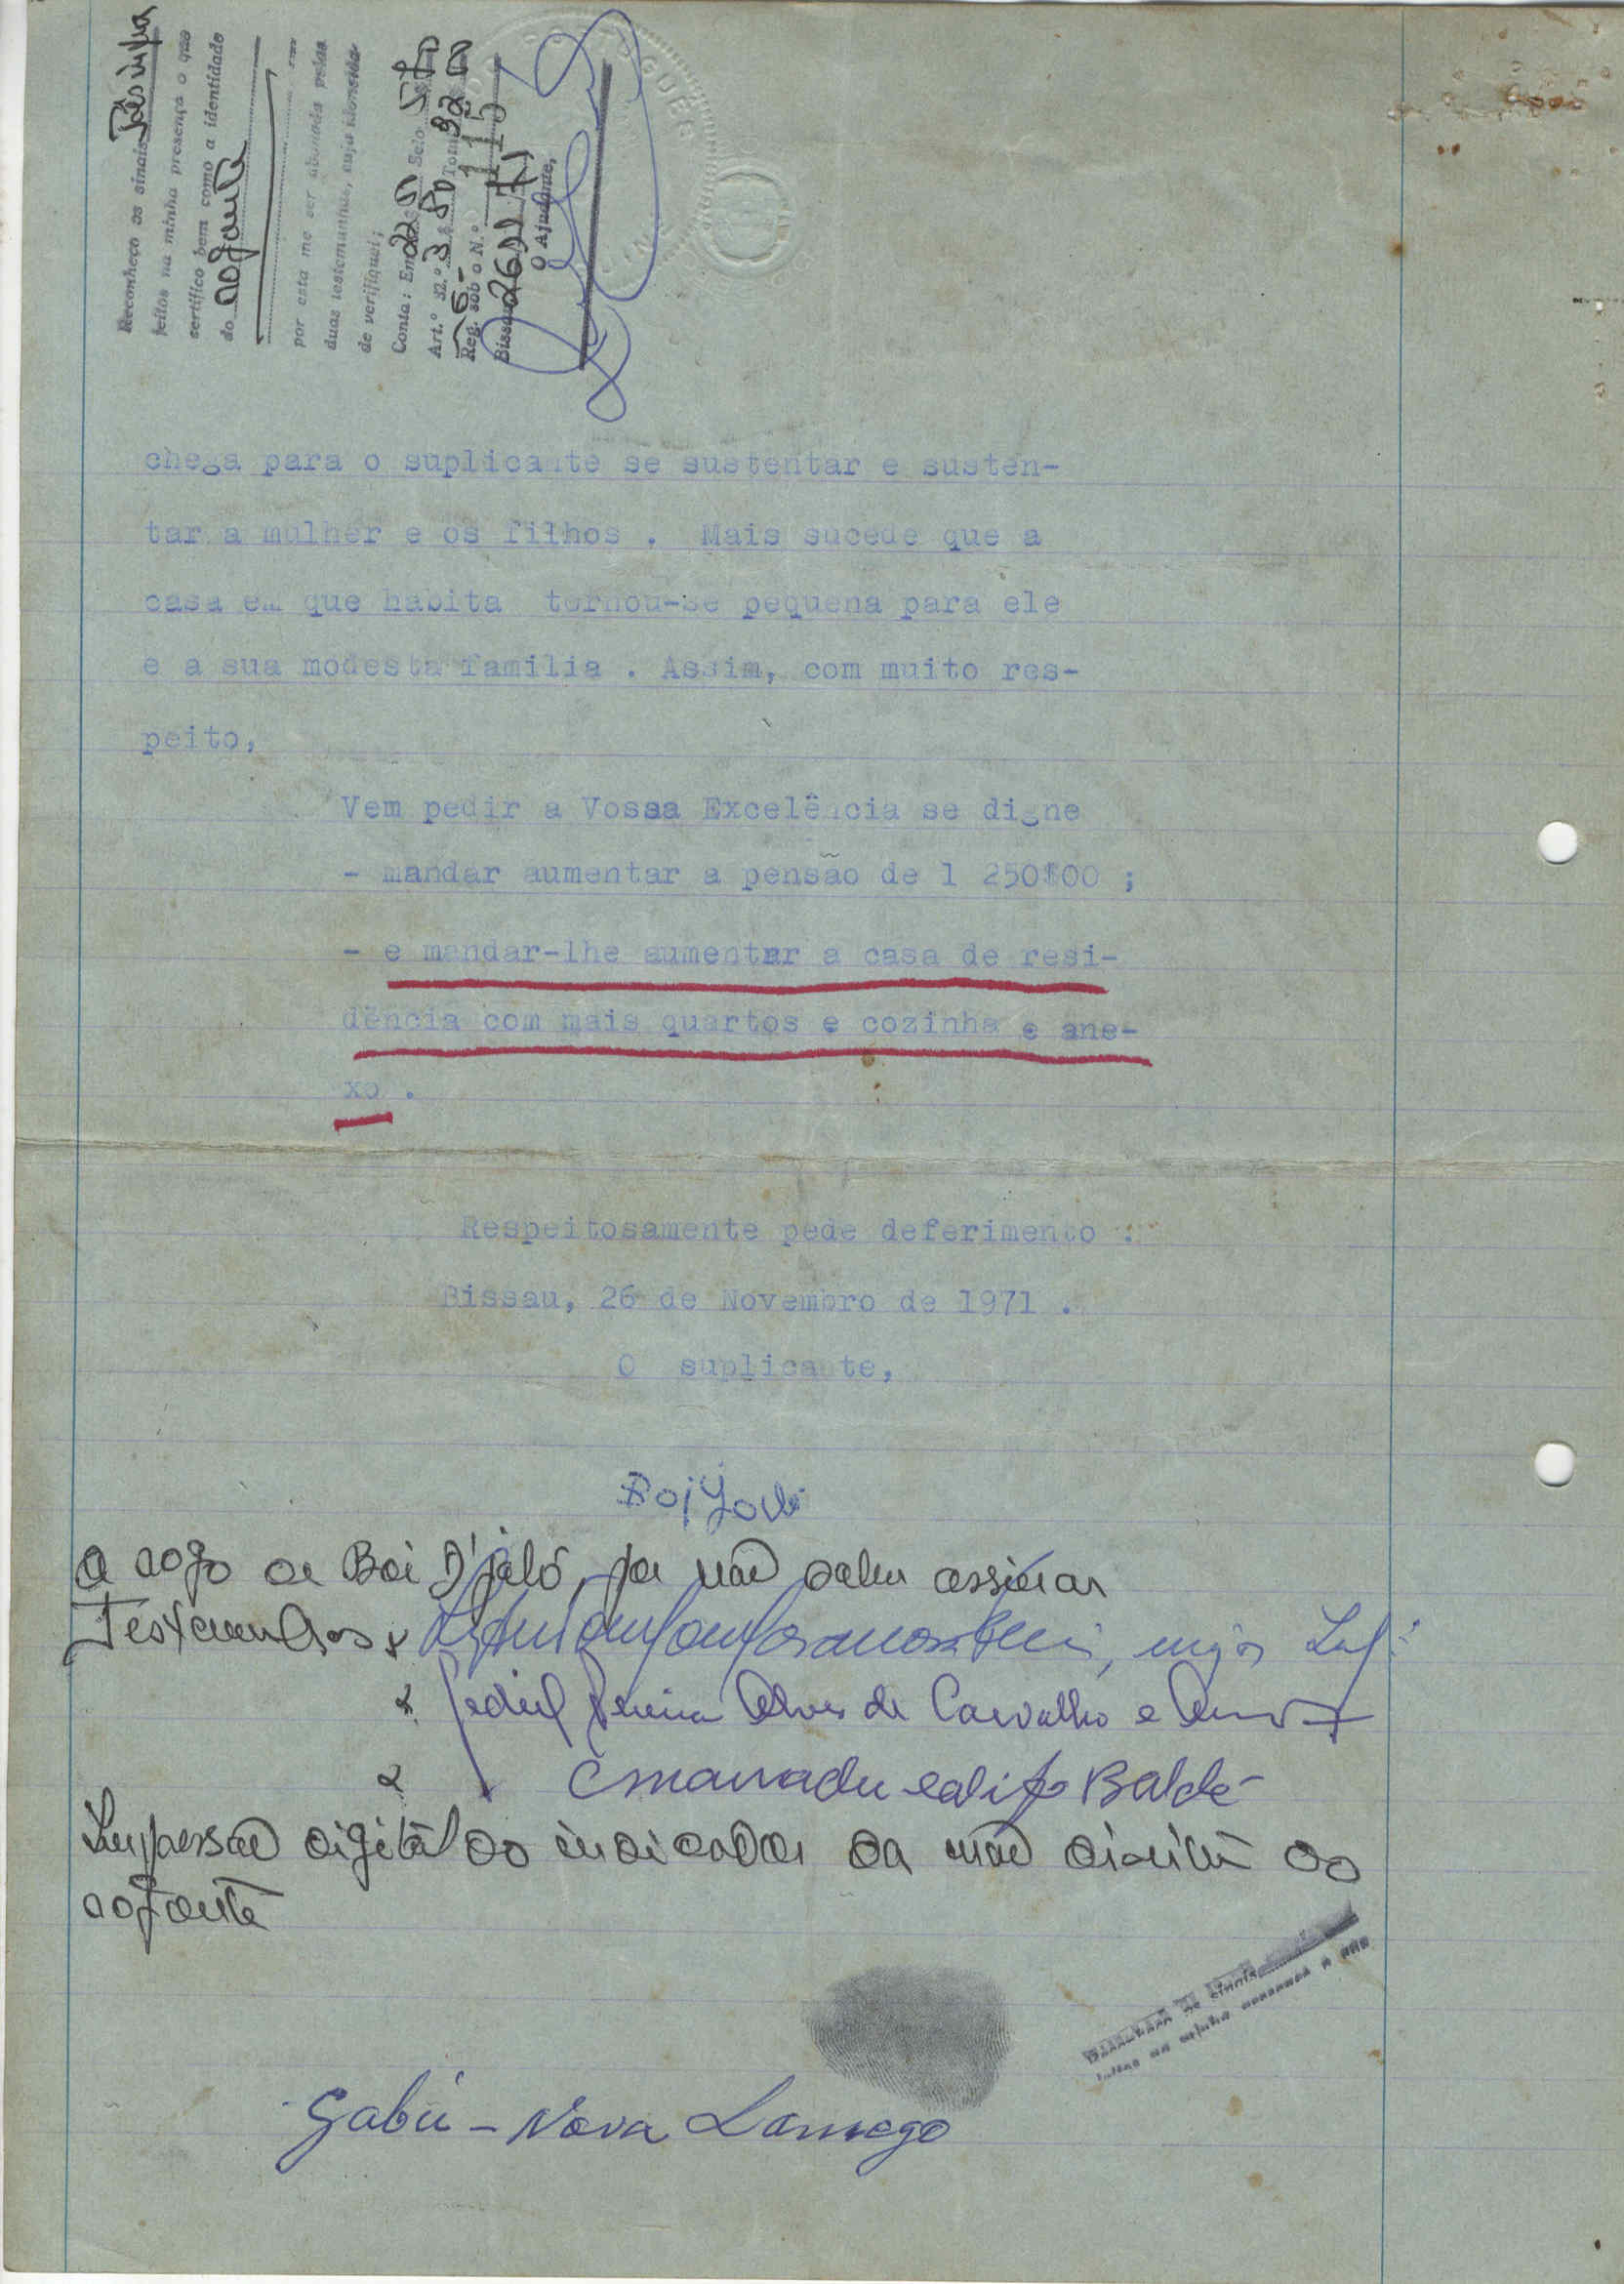 Reconheço os sinais
feitos na minha presença o que
certifico bem como a identidade
do rogante
por esta me ser abonada pelas
duas testemunhas, cuja idoneida-
de verifiquei;
Conta: Em Selo
Art.º 32.º
Reg. sob o N.º 115
Bissau 26/11/71
O Ajudante,
chega para o suplicante se sustentar e susten-
tar a mulher e os filhos . Mais sucede que a
casa em que habita tornou-se pequena para ele
e a sua modesta familia . Assim, com muito res-
peito,
Vem pedir a Vossa Excelência se digne
- mandar aumentar a pensão de 1 250$00 ;
- e mandar-lhe aumentar a casa de resi-
dência com mais quartos e cozinha e ane-
xo .
Respeitosamente pede deferimento :
Bissau, 26 de Novembro de 1971 .
O suplicante,
A rogo de Boi D'jaló, por não saber assinar
Testemunhas
Pereira Alves de Carvalho e
Balde
Impressão digital do indicador da mão direita do
rogante
Gabú - Nova Lamego